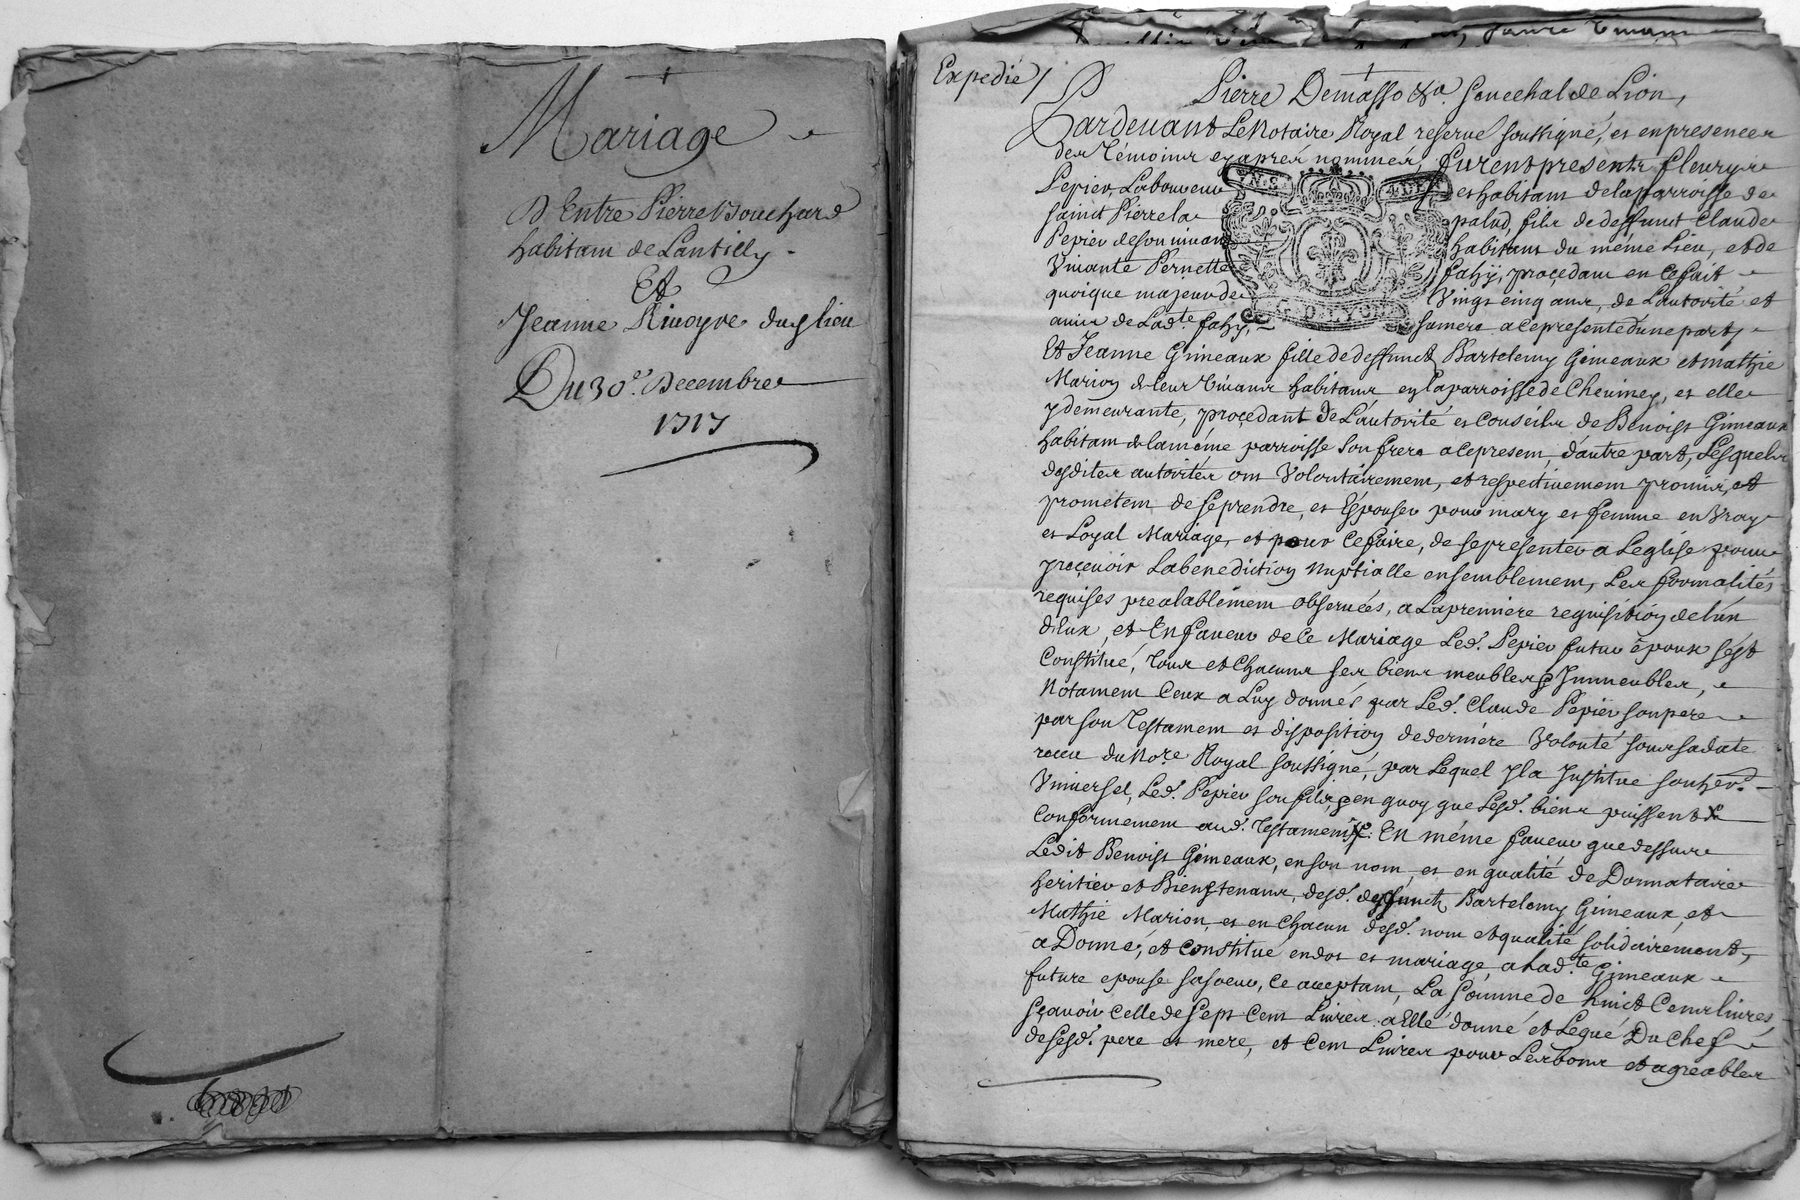 Mariage
D'Entre Pierre Bouchard
habitant de Lantilly
Et
Jeanne Rivoyre dud lieu
Du 30e. Decembre
1717
Expedié /
Pierre Demasso &a. senechal de Lion,
Pardevant Le Notaire Royal reservé soussigné, et en presence
des Témoins cy aprés nommés, furent presents fleury
Pepier Laboureur et habitant de la parroisse de
saint Pierre la palud, fils de deffunct Claude
Pepier de son vivant habitant du même Lieu, et de
Vivante Pernette fahy, procedant en ce fait
quoique majeur de Vingt cinq ans, de L'autorité et
avis de Lad.te fahy, sa mere a ce presente d'une part,
Et Jeanne Gimeaux fille de deffunct Bartelemy Gimeaux et mathie
Marion de leur Vivant habitans en la parroisse de Cheviney, et elle
y demeurante, procedant de L'autorité et Conseils de Benoist Gimeaux
habitant de la même parroisse son frere a ce present, d'autre part, Lesquels
desdites autorités ont Volontairement, et respectivement promis, et
promettent de se prendre, et Epouser pour mary et femme en Vray
et Loyal Mariage, et pour Ce faire, de se presenter a Leglise pour
y recevoir La benediction Nuptialle ensemblement, Les formalités
requises prealablement observées, a La premiere requisition de L'un
d'Eux, et En faveur de Ce Mariage Led. Pepier futur époux s'est
Constitué, Tous et Chacuns ses biens meubles & Immeubles,
Notament Ceux a Luy donnés par Led. Claude Pepier son pere
par son Testament et disposition de derniére Volonté sous sa date
receu du No.re Royal soussigné, par Lequel Il a Institué son her.
Universel, Led. Pepier son fils, & en quoy que Lesd. biens puissent
Conformement aud. Testament. En même faveur que dessus
Ledit Benoist Gimeaux, en son nom, et en qualité de Donnataire
heritier et Bienstenant, desd. deffuncts Bartelemy Gimeaux, et
Mathie Marion, et en Chacun desd. nom et qualité solidairement,
a Donné, et Constitué en dot et mariage, a Lad.te Gimeaux
future epouse sa soeur, Ce acceptant, La somme de huict Cents livres,
sçavoir Celle de sept Cent Livres a Elle donné et Legué Du Chef
de sesd. pere et mere, et Cent Livres pour Les bons et agreables